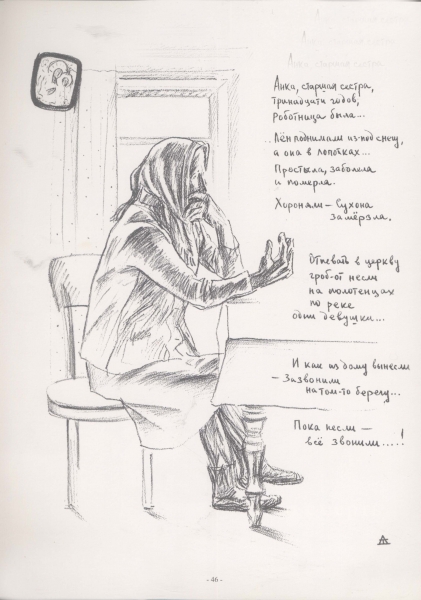 Анка, старшая сестра,
тринадцати годов,
роботница была...
Лён поднимали из-под снегу,
а она в лопотках...
Простыла, заболела
и померла.
Хоронили – Сухона
замёрзла.
Отпевать в церкву
гроб-от несли
на полотенцах
по реке
одни девушки...
И как из дому вынесли
– Зазвонили
на том-то берегу...
Пока несли –
всё звонили.....!
- 46 -